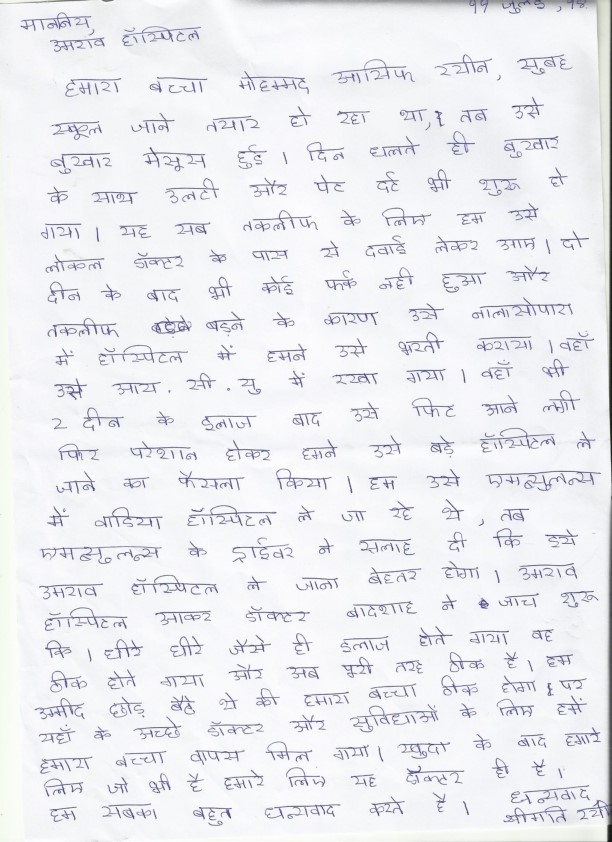 ११ जुलाई, १८
माननीय,
उमराव हॉस्पिटल
हमारा बच्चा मोहम्मद आसिफ रयीन, सुबह
स्कूल जाने तयार हो रहा था, तब उसे
बुखार मेसूस हुई । दिन ढलते ही बुखार
के साथ उलटी और पेट दर्द भी शुरू हो
गया । यह सब तकलीफ के लिए हम उसे
लोकल डॉक्टर के पास से दवाई लेकर आए । दो
दीन के बाद भी कोई फर्क नही हुआ और
तकलीफ बड़ने के कारण उसे नालासोपारा
में हॉस्पिटल में हमने उसे भरती कराया । वहाँ
उसे आय . सी . यु में रखा गया । वहाँ भी
२ दीन के इलाज बाद उसे फिट आने लगी
फिर परेशान होकर हमने उसे बड़े हॉस्पिटल ले
जाने का फैसला किया । हम उसे एमब्युलन्स
में वाडिया हॉस्पिटल ले जा रहे थे , तब
एमब्युलन्स के ड्राईवर ने सलाह दी कि इसे
उमराव हॉस्पिटल ले जाना बेहतर होगा । उमराव
हॉस्पिटल आकर डॉक्टर बादशाह ने जाच शुरू
कि । धीरे धीरे जैसे ही इलाज होते गया वह
ठीक होते गया और अब पूरी तरह ठीक है । हम
उम्मीद छोड़ बैठे थे की हमारा बच्चा ठीक होगा पर
यहाँ के अच्छे डॉक्टर और सुविधाओं के लिए हमें
हमारा बच्चा वापस मिल गया । खुदा के बाद हमारे
लिए जो भी है हमारे लिए यह डॉक्टर ही है ।
हम सबका बहुत धन्यवाद करते है ।
धन्यवाद
श्रीमति रयी